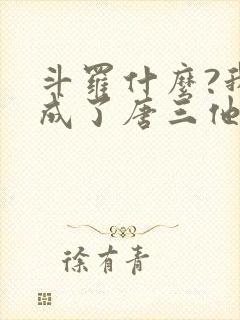 斗羅什麼?我
成了唐三他
徐有青